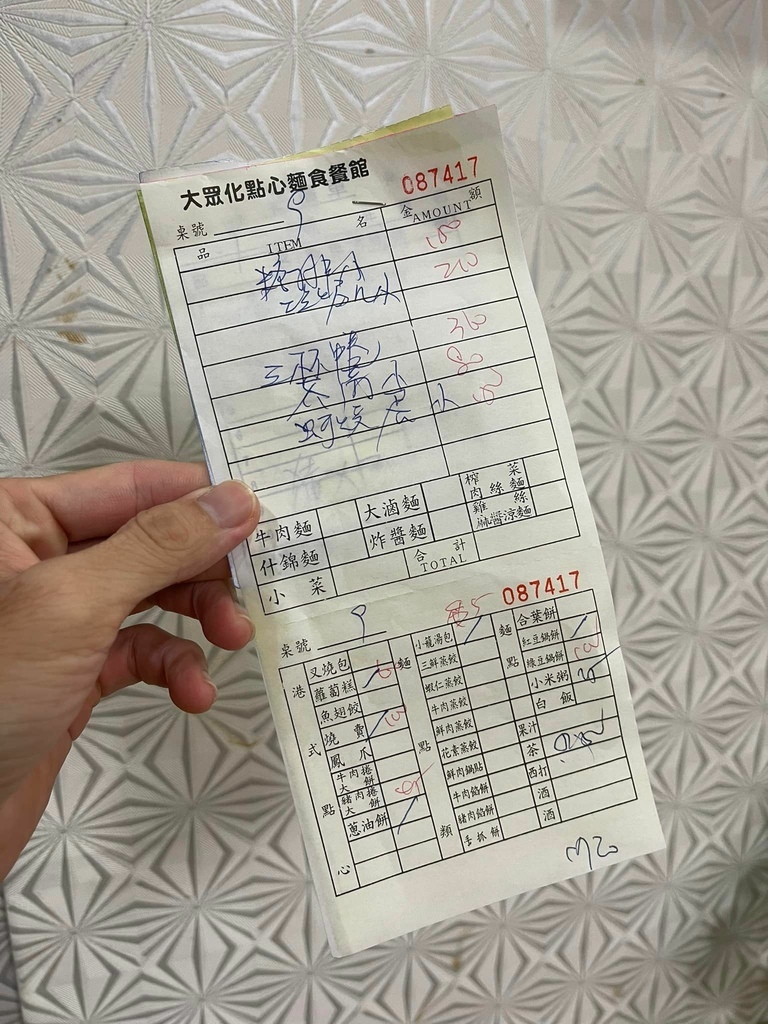 大眾化點心麵食餐館
087417
桌號 9
品 ITEM 名 金 AMOUNT 額
210
三杯
360
80
牛肉麵 大滷麵 榨菜肉絲麵
什錦麵 炸醬麵 雞絲麻醬涼麵
小菜 合計 TOTAL
087417
桌號 9
港式點心
叉燒包
蘿蔔糕
魚翅餃
燒賣
鳳爪
牛肉捲大餅
豬肉捲大餅
蔥油餅
麵點類
小籠湯包
三鮮蒸餃
蝦仁蒸餃
牛肉蒸餃
鮮肉蒸餃
花素蒸餃
鮮肉鍋貼
牛肉餡餅
豬肉餡餅
手抓餅
麵點
合葉餅
紅豆鍋餅
綠豆鍋餅
小米粥
白飯
果汁
茶
西打
酒
酒